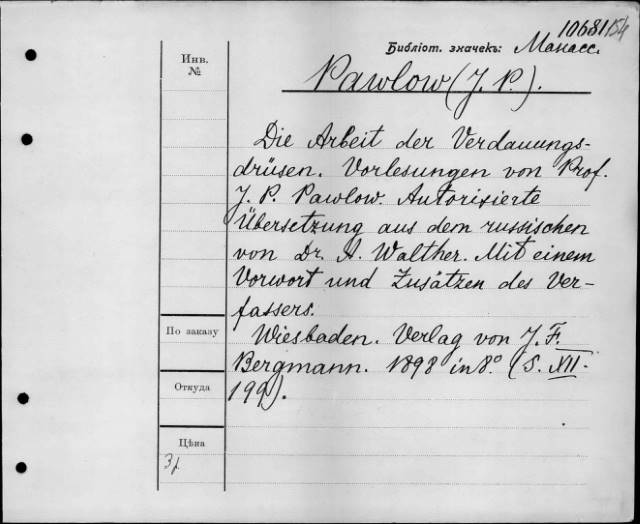 10681
Библіот. значекъ: Манасс.
Инв.
№
Pawlow (J. P.).
Die Arbeit der Verdauungs-
drüsen. Vorlesungen von Prof.
J. P. Pawlow. Autorisierte
Übersetzung aus dem russischen
von Dr. A. Walther. Mit einem
Vorwort und Zusätzen des Ver-
fassers.
По заказу
Wiesbaden. Verlag von J. F.
Bergmann. 1898 in 8° (S. XII.
Откуда
199).
Цѣна
3 р.